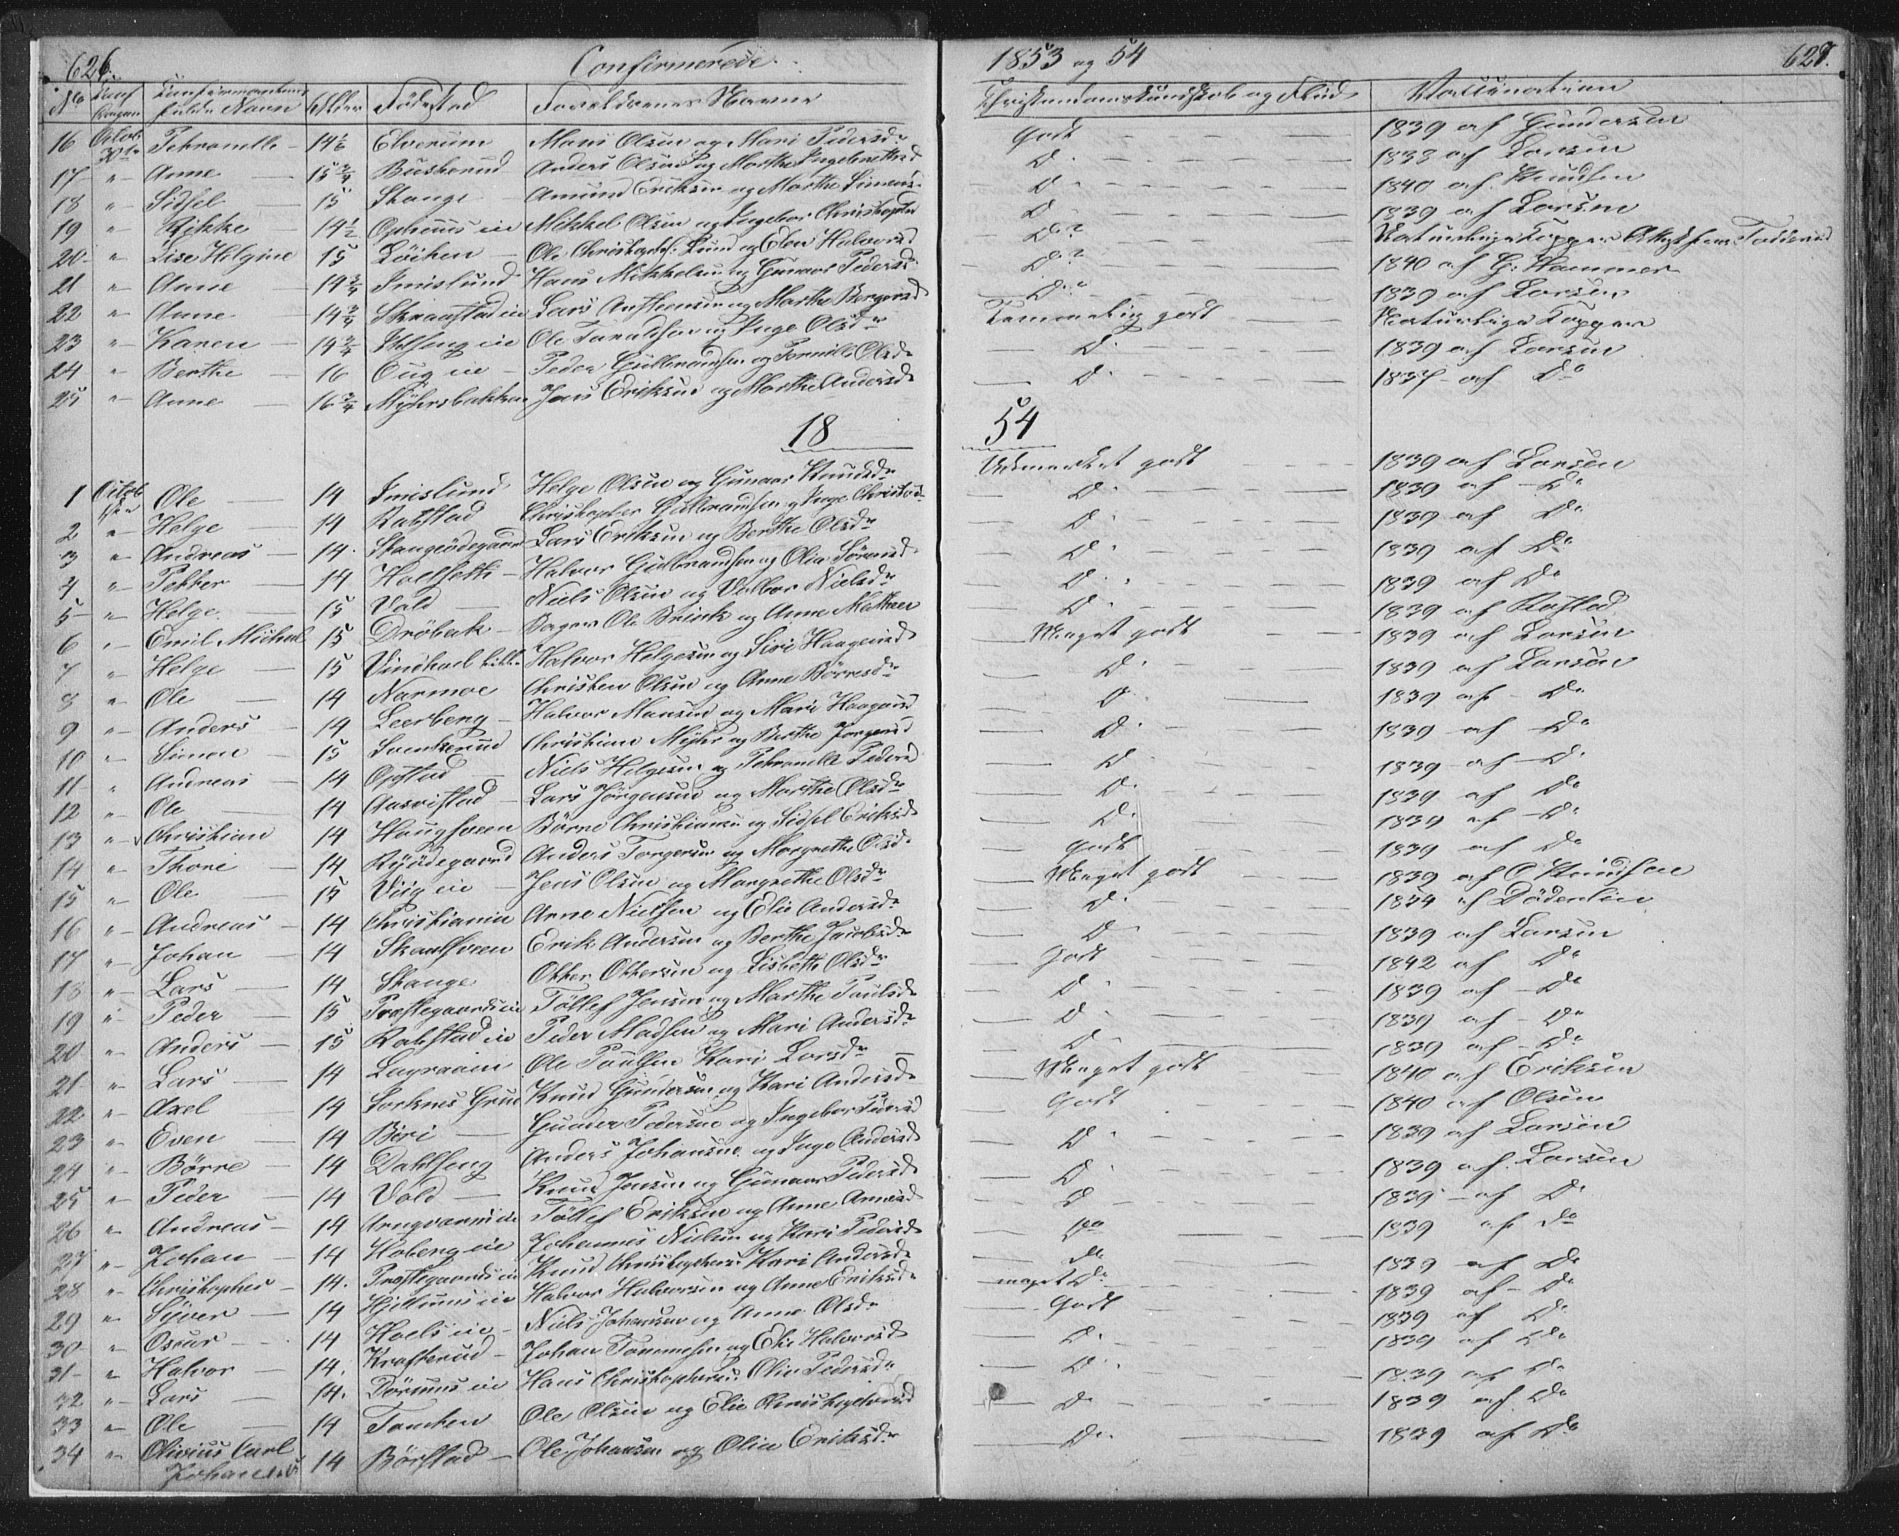 626. Confirmerede 1853 og 54 627.
No Alder Fødested Forældrenes Navne Christendomskundskab og Flid Vaccination
16 Petronelle 14 1/2 Elverum Mons Olsen og Mari Pedersdr Godt 1839 af Gundersen
17 " Anne 15 3/4 Buskerud Anders Olsen og Marthe Ingebretsd Do 1838 af Larsen
18 " Sidsel 15 Skange Amund Eriksen og Marthe Simensd Do 1840 af Knudsen
19 " Rikke 14 1/2 Ophuus eie Mikkel Olsen og Ingebor Christophd Do 1839 af Larsen
20 " Lise Helgine 15 Løiten Ole Christophs. Lund og Elen Halvorsd Do Naturlige Kopper
21 " Anne 14 3/4 Imislund Hans Mikkelsen og Gunnor Pedersd Do 1840 af G. Hammer
22 " Anne 14 3/4 Skraastad eie Lars Anstensen og Marthe Borgersd Do 1839 af Larsen
23 " Karen 14 3/4 eie Ole Taraldsen og Inge Olsdr Temmelig godt Naturlige Kopper
24 " Berthe 16 eie Peder Gulbrandsen og Pernille Olsdr Do 1839 af Larsen
25 " Anne 16 3/4 Myhrsbakken Jens Eriksen og Marthe Andersd Do 1837 af Do
18 54
1 Ole 14 Imislund Helge Olsen og Gunnor Knudsdr Udmærket godt 1839 af Larsen
2 " Helge 14 Ratstad Christopher Gulbrandsen og Inge Christiansd Do 1839 af Do
3 " Andreas 14. Skangeødegaard Lars Eriksen og Berthe Olsdr Do 1839 af Do
4 " Petter 14 Hoelsett Halvor Gulbrandsen og Olia Sørensd Do 1839 af Do
5 " Helge 15 Vold Niels Olsen og Volbor Nielsdr Do 1839 af Do
6 " Emil Michael 15 Drøbak Bager Ole Brink og Anne Do 1839 af
7 " Helge 15 Halvor Helgesen og Siri Haagensd Meget godt 1839 af Larsen
8 " Ole 14 Narmoe Christen Olsen og Anne Børresdr Do 1839 af Larsen
9 " Anders 14 Leerberg Halvor Monsen og Mari Haagensd Do 1839 af Do
10 " Simen 15 Svenkerud Christian Myhr og Berthe Jørgensd Do 1839 af Do
11 " Andreas 14 Opstad Niels Helgesen og Petronelle Pedersd Do 1839 af Do
12 " Ole 14 Aasvistad Lars Jørgensen og Marthe Olsdr Do 1839 af Do
13 " Christian 14 Haugsveen Børre Christiansen og Sidsel Eriksd Do 1839 af Do
14 " Thore 14 Ryødegaard Anders Torgersen og Margrethe Olsd Godt 1839 af Do
15 " Ole 15 Viig eie Jens Olsen og Margrethe Olsdr Meget godt 1839 af O Knudsen
16 " Andreas 14 Christiania Arne Nielsen og Elie Andersdr Do 1854 af Døderlein
17 " Johan 14 Skaalsveen Erik Andersen og Berthe Jacobsdr Do 1839 af Larsen
18 " Lars 14 Skange Otter Ottersen og Lisbeth Olsdr Godt 1842 af Do
19 " Peder 15 Præstegaards eie Tollef Jensen og Marthe Paulsd Do 1839 af Do
20 " Anders 15 Ratstad eie Peder Madsen og Mari Andersdr Do 1839 af Do
21 " Lars 14 Ole Paulsen Kari Larsdr Do 1839 af Do
22 " Axel 14 Sorknes Grue Knud Gundersen og Kari Andersd Meget godt 1840 af Eriksen
23 " Even 14 Beri Gunder Pedersen og Ingebor Pedersd Godt 1840 af Olsen
24 " Børre 14 Dahlseng Anders Johansen og Inge Andersd Do 1839 af Larsen
25 " Peder 14 Vold Knud Jensen og Gunnor Pedersd Do 1839 af Larsen
26 " Andreas 14 eie Tollef Eriksen og Anne Arnesd Do 1839 af Do
27 " Johan 14 Hoberg eie Johannes Nielsen og Kari Pedersd Do 1839 af Do
28 " Christopher 14. Præstegaards eie Knud Christophers. Kari Andersd Do 1839 af Do
29 " Syver 14 Hjellums eie Halvor Halvorsen og Anne Eriksd meget Do 1839 af Do
30 " Oscar 14 Hoels eie Niels Johansen og Anne Olsdr Godt 1839 af Do
31 " Halvor 14. Krafterud Johan Tommesen og Elie Halvorsd Do 1839 af Do
32 " Lars 14. eie Hans Christophers. Olia Pedersdr Do 1839 af Do
33 " Ole 14 Tomten Ole Olsen og Elie Christophersd Do 1839 af Do
34 " Olivius Carl Johannes 14 Børstad Ole Johansen og Olia Eriksdr Do 1839 af Do